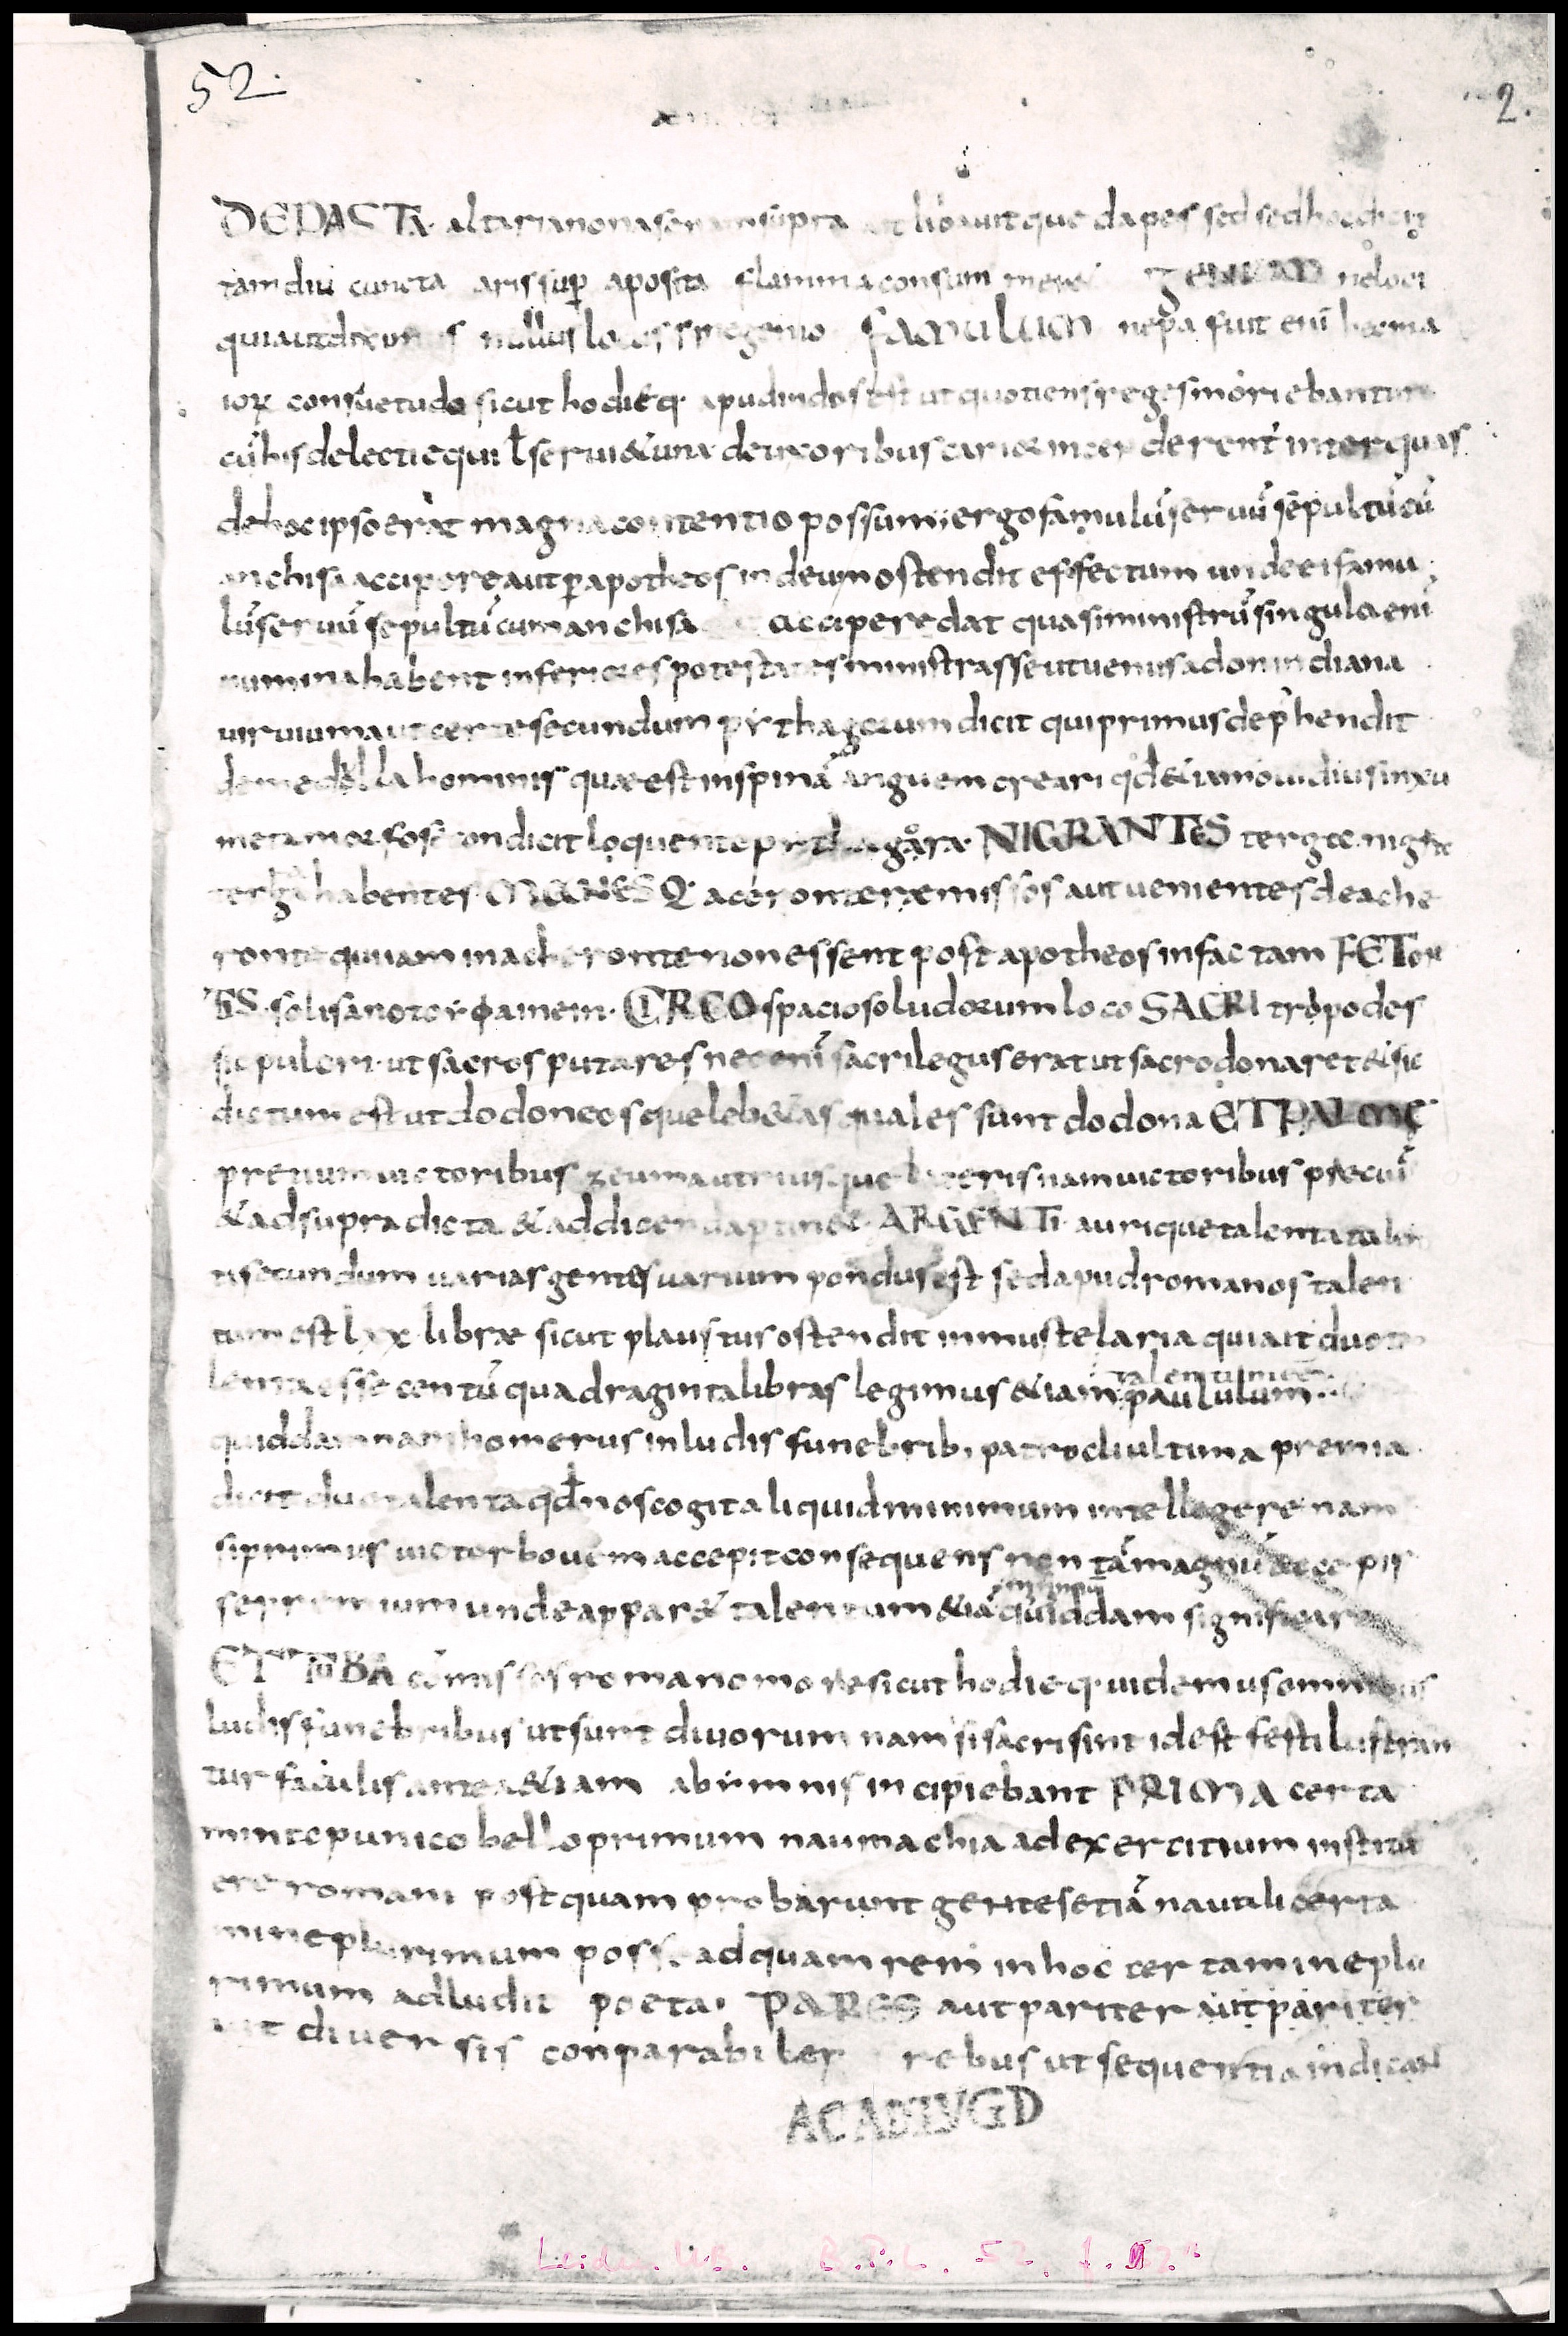 52.
2.
DEPASTA altaria non a serpente supra ait libauitque dapes sed sed hoc dicit
tamdiu cuncta aris sup aposita flamma consumere GENIUM ne loci
qui aut diximus nullus locus sine genio FAMULUM nepa fuit eni hec ma
iorꝝ consuetudo sicut hodieq· apud indos est ut quotiens reges moriebantur
cū his delecti equi ł serui & una de uxoribus carior incenderent inter quas
de hoc ipso erat magna contentio possum; ergo famulū seruū sepultū cū
anchisa accipere aut p apotheosin deum ostendit effectum unde ei famu
lū seruū sepultū cum anchisa accipere dat quasi ministrū singula eni
numina habent inferiores potestates ministras se ut uenus adonin diana
uiruium aut certe secundum pythagoram dicit qui primus dep̄hendit
de medolla hominis quæ est in spina anguem creari qd̄ & iam ouidius in xu
metamorfoseon dicit loquente pythagora NIGRANTES tergo nigra
terga habentes MANESQ· aceronte remissos aut uenientes de ache
ronte quiiam in acheronte non essent post apotheosin factam FETON
TIS· solis ano toy ϕainein· CIRCO spacioso ludorum loco SACRI tripodes
sic pulcri· ut sacros putares nec eni sacrilegus erat ut sacro donaret & sic
dictum est ut dodoneosque leb&as quales sunt dodona ET PALME
premium uictoribus zeuma utriusque lateris nam uictoribus precium
& ad supra dicta & ad dicenda ptin& ARGENTI· aurique talenta talen
ti secundum uarias gentes uarium pondus est sed apud romanos talen
tum est lxx libræ sicut plaustus ostendit in mustelaria qui ait duo ta
talentum
lenta esse centū quadraginta libras legimus & iam paululum
quiddam nam homerus in ludis funebrib; patrocli ultima premia
dicit duo talenta qd̄ nos cogit aliquid minimum intellegere nam
si primus uictor bouem accepit consequens non tā magnū accepis
minimū
se premium unde appar& talentum &iā quiddam significare
ET TUBA cōmissos romano more sicut hodieq· uidemus omnibus
ludis funebribus ut sunt diuorum nam si sacri sint id est festi lustran
tur faculis antea & iam abiimnis incipiebant PRIMA certa
mine punico bello primum naumachia ad exercitium institu
ere romani postquam probarunt gentes etiā nauali certa
mine plurimum posse ad quam rem in hoc certamine plu
rimum adludit poeta· PARES aut pariter aut pariter
aut diuersis conparabiles rebus ut sequentia indicant
ACAD LVGD
Leiden. U.B. B.P.L. 52, f. 52.